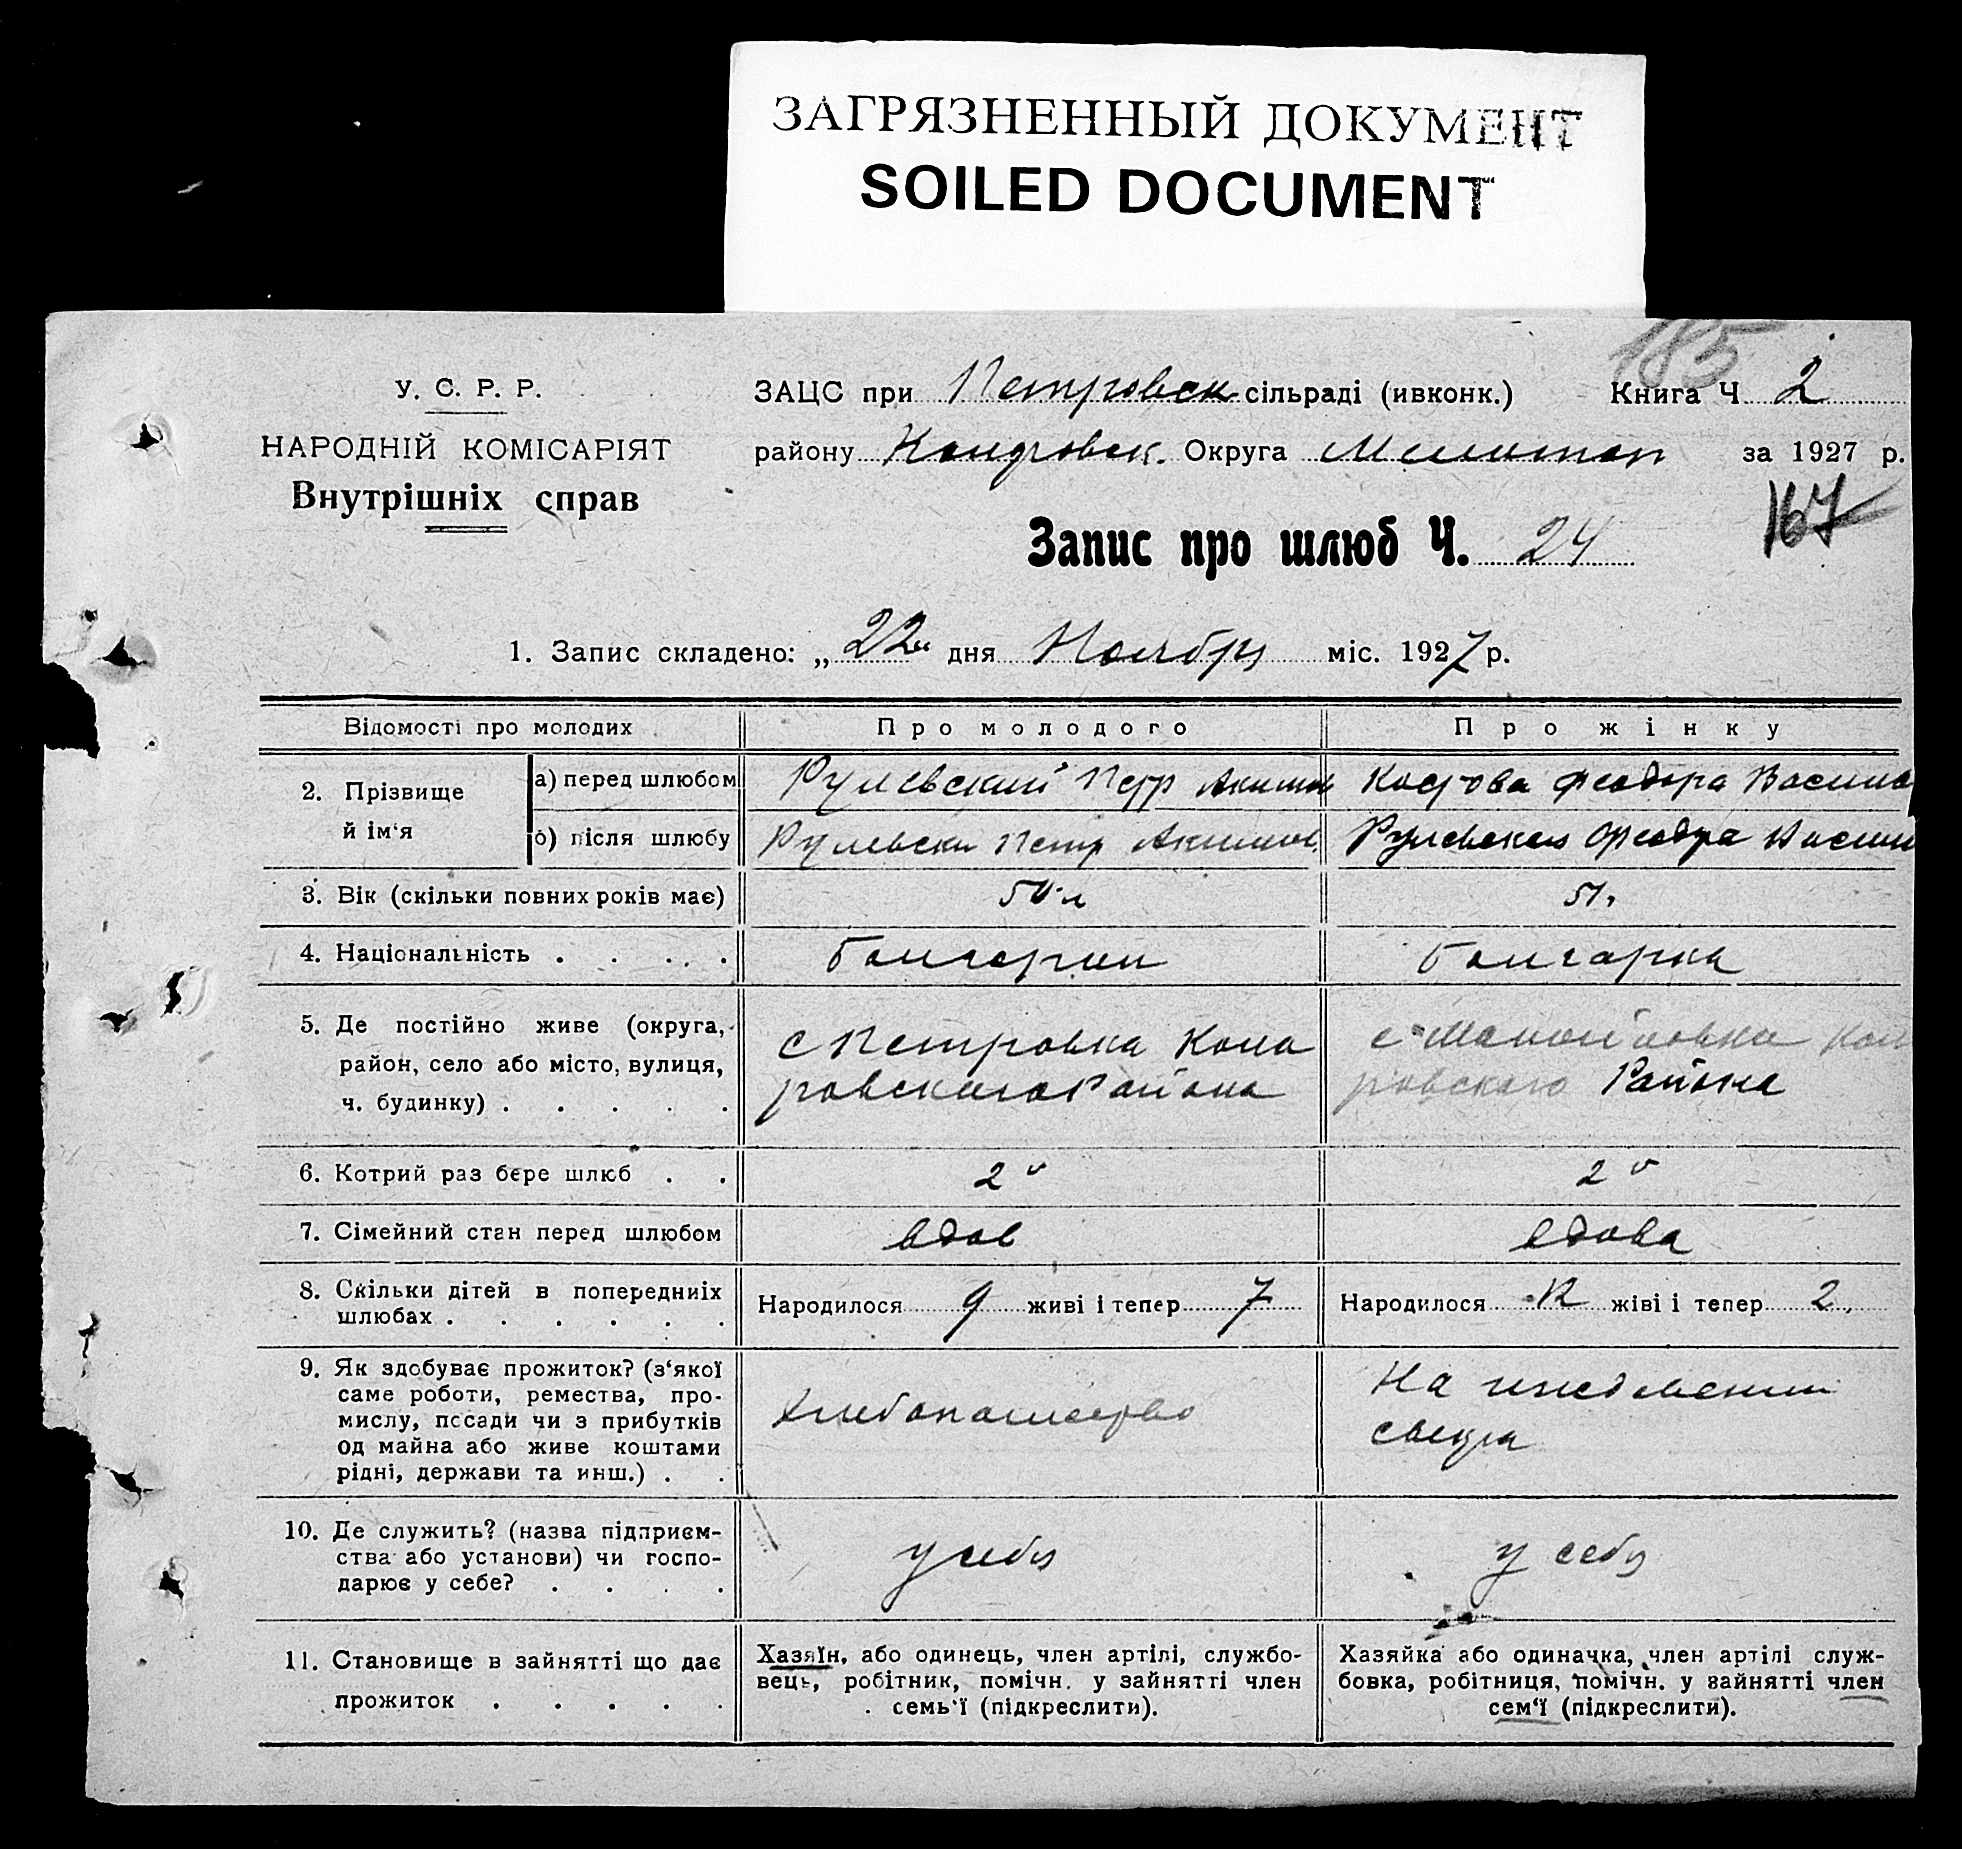 ЗАГРЯЗНЕННЫЙ ДОКУМЕНТ
SOILED DOCUMENT
185
У. С. Р. Р.
НАРОДНІЙ КОМІСАРІЯТ
Внутрішніх справ
ЗАЦС при Петровск сільраді (ивконк.) Книга Ч 2
району Округа Мелитоп за 1927 р.
167
Запис про шлюб Ч. 24
1. Запис складено: „22" дня Ноября міс. 1927 р.
Відомості про молодих Про молодого Про жінку
2. Прізвище й ім'я
а) перед шлюбом Рулевский Петр Акимов Костова Феодора Васил
б) після шлюбу Рулевски Петр Акимов. Рулевская Феодора Васил
3. Вік (скільки повних років має) 50 л 51.
4. Національність . . . . . болгарин болгарка
5. Де постійно живе (округа, район, село або місто, вулиця, ч. будинку) . . . . .
с Петровка Кола
ровскаго Района
с Манойловка Кол
ровскаго Района
6. Котрий раз бере шлюб . . 2й 2й
7. Сімейний стан перед шлюбом вдов вдова
8. Скільки дітей в попередниіх шлюбах . . . . . .
Народилося 9 живі і тепер 7
Народилося жіві і тепер 2.
9. Як здобуває прожиток? (з'якої
саме роботи, ремества, про-
мислу, посади чи з прибутків
од майна або живе коштами
рідні, держави та инш.) . .
хлебопашество
На иждивении
свекра
10. Де служить? (назва підприєм-
ства або установи) чи госпо-
дарює у себе? . . . .
у себя
у себя
11. Становище в зайнятті що дає
прожиток . . . . .
Хазяїн, або одинець, член артілі, службо-
вець, робітник, помічн. у зайнятті член
семь'ї (підкреслити).
Хазяйка або одиначка, член артілі служ-
бовка, робітниця, помічн. у зайнятті член
сем'ї (підкреслити).